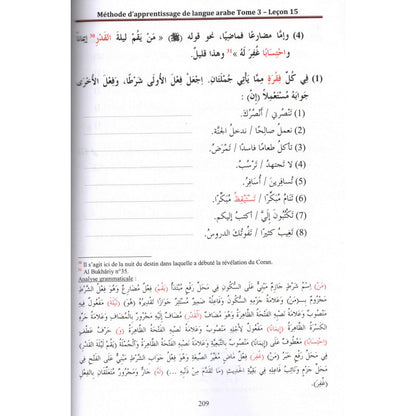 Méthode d'apprentissage de langue arabe Tome 3 – Leçon 15
(4) وإمَّا مضارعًا فماضيًا، نحو قوله (ﷺ) « مَنْ يَقُمْ ليلةَ القَدْرِ³⁰ إيمانًا
و احْتِسَابًا غُفِرَ لَهُ »³¹ وهذا قليلٌ.
(1) فِي كُلِّ فِقْرَةٍ مِمَّا يَأْتِي جُمْلَتَانِ. اِجْعَلْ فِعْلَ الْأُولَى شَرْطًا، وَفِعْلَ الْأُخْرَى
جَوَابَهُ مُسْتَعْمِلاً (إِنْ):
(1) تَنْصُرني / أَنْصُرُكَ.
(2) نعملُ صالحًا / ندخلُ الجنّةَ.
(3) تأكلُ طعامًا فاسدًا / تَمْرَضُ.
(4) لا تجتهدُ / تَرْسُبُ.
(5) تُسافِرينَ / أُسَافِرُ.
(6) تَنَامُ مُبَكِّرًا / تَسْتَيْقِظُ مُبَكِّرًا.
(7) تَكْتُبُونَ إِلَيَّ / أكتبُ إليكم.
(8) تَغِيبُ كثيرًا / تَفُوتُكَ الدروسُ.
³⁰ Il s'agit ici de la nuit du destin dans laquelle a débuté la révélation du Coran.
³¹ Al Bukhâriy n°35.
Analyse grammaticale :
(مَنْ) اِسْمُ شَرْطٍ جَازِمٌ مَبْنِيٌّ عَلَى السُّكُونِ فِي مَحَلِّ رَفْعِ مُبْتَدَأٍ (يَقُمْ) فِعْلٌ مُضَارِعٌ وَهُوَ فِعْلُ الشَّرْطِ
مَجْزُومٌ بِـ(مَنْ) وَعَلَامَةُ جَزْمِهِ السُّكُونُ وَفَاعِلُهُ ضَمِيرٌ مُسْتَتِرٌ جَوَازًا تَقْدِيرُهُ (هُوَ) (لَيْلَةَ) مَفْعُولٌ فِيهِ
مَنْصُوبٌ وَعَلَامَةُ نَصْبِهِ الْفَتْحَةُ الظَّاهِرَةُ وَهُوَ مُضَافٌ (الْقَدْرِ) مُضَافٌ إِلَيْهِ مَجْرُورٌ وَعَلَامَةُ جَرِّهِ
الْكَسْرَةُ الظَّاهِرَةُ (إِيمَانًا) مَفْعُولٌ لِأَجْلِهِ مَنْصُوبٌ وَعَلَامَةُ نَصْبِهِ الْفَتْحَةُ الظَّاهِرَةُ (وَ) حَرْفُ عَطْفٍ
(احْتِسَابًا) مَعْطُوفٌ عَلَى (إِيمَانًا) مَنْصُوبٌ وَعَلَامَةُ نَصْبِهِ الْفَتْحَةُ الظَّاهِرَةُ وَالْجُمْلَةُ (يَقُمْ لَيْلَةَ الْقَدْرِ)
فِي مَحَلِّ رَفْعِ خَبَرِ (مَنْ) (غُفِرَ) فِعْلٌ مَاضٍ مُغَيَّرُ الصِّيغَةِ وَهُوَ فِعْلُ جَوَابِ الشَّرْطِ مَبْنِيٌّ عَلَى الْفَتْحِ فِي
مَحَلِّ جَزْمٍ وَنَائِبُ فَاعِلِهِ فِي بَقِيَّةِ الْحَدِيثِ (مَا تَقَدَّمَ مِنْ ذَنْبِهِ ...) (لَهُ) جَارٌّ وَمَجْرُورٌ مُتَعَلِّقَانِ بِالْفِعْلِ
(غُفِرَ).
209